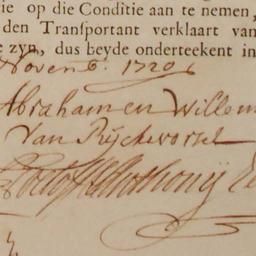 ie op die Conditie aan te nemen,
den Tranſportant verklaart van
e zyn, dus beyde onderteekent in
Novemb. 1720
Abraham en Willem
Van Rijckevorsel